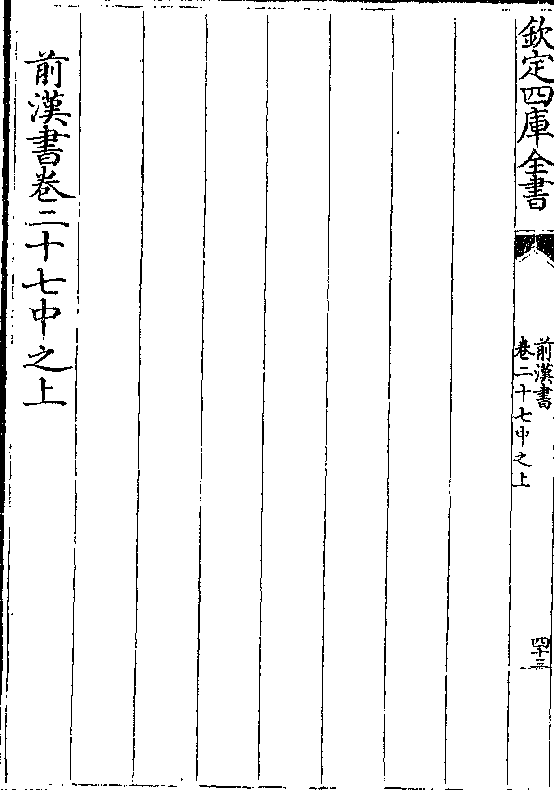 欽定四庫全書
前漢書
卷二十七中之上
四十三
前漢書卷二十七中之上